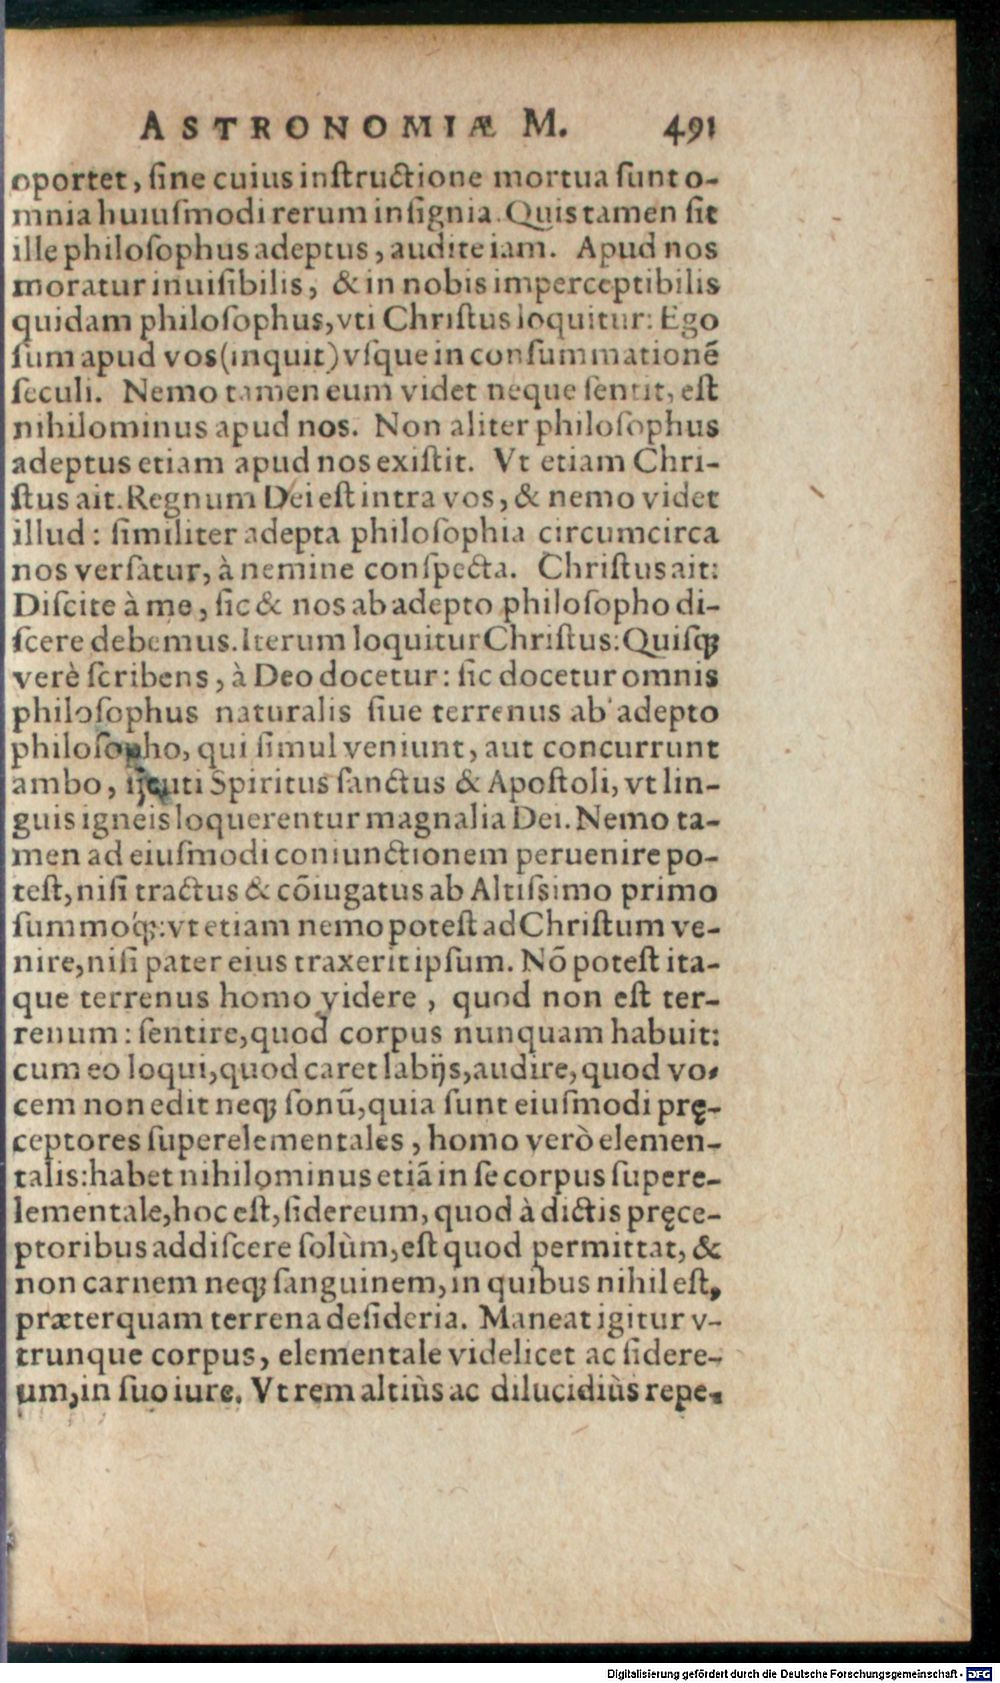 ASTRONOMIÆ M. 491
oportet, ſine cuius inſtructione mortua ſunt o-
mnia huiuſmodi rerum inſignia. Quis tamen ſit
ille philoſophus adeptus, audite iam. Apud nos
moratur inuiſibilis, & in nobis imperceptibilis
quidam philoſophus, vti Chriſtus loquitur: Ego
ſum apud vos (inquit) vſque in conſummationē
ſeculi. Nemo tamen eum videt neque ſentit, eſt
nihilominus apud nos. Non aliter philoſophus
adeptus etiam apud nos exiſtit. Vt etiam Chri-
ſtus ait. Regnum Dei eſt intra vos, & nemo videt
illud: ſimiliter adepta philoſophia circumcirca
nos verſatur, à nemine conſpecta. Chriſtus ait:
Diſcite à me, ſic & nos ab adepto philoſopho di-
ſcere debemus. Iterum loquitur Chriſtus: Quiſqꝫ
verè ſcribens, à Deo docetur: ſic docetur omnis
philoſophus naturalis ſiue terrenus ab adepto
philoſopho, qui ſimul veniunt, aut concurrunt
ambo, ſicuti Spiritus ſanctus & Apoſtoli, vt lin-
guis igneis loquerentur magnalia Dei. Nemo ta-
men ad eiuſmodi coniunctionem peruenire po-
teſt, niſi tractus & cōiugatus ab Altiſsimo primo
ſummoq́ꝫ: vt etiam nemo poteſt ad Chriſtum ve-
nire, niſi pater eius traxerit ipſum. Nō poteſt ita-
que terrenus homo videre, quod non eſt ter-
renum: ſentire, quod corpus nunquam habuit:
cum eo loqui, quod caret labijs, audire, quod vo-
cem non edit neqꝫ ſonū, quia ſunt eiuſmodi prę-
ceptores ſuperelementales, homo verò elemen-
talis: habet nihilominus etiā in ſe corpus ſupere-
lementale, hoc eſt, ſidereum, quod à dictis pręce-
ptoribus addiſcere ſolùm, eſt quod permittat, &
non carnem neqꝫ ſanguinem, in quibus nihil eſt,
præterquam terrena deſideria. Maneat igitur v-
trunque corpus, elementale videlicet ac ſidere-
um, in ſuo iure. Vt rem altiùs ac dilucidiùs repe-
Digitalisierung gefördert durch die Deutsche Forschungsgemeinschaft - DFG